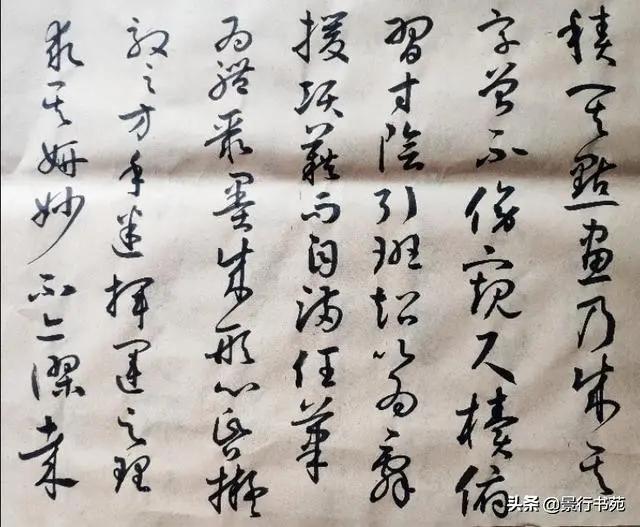 積其點畫乃成其
字曾不傍窺尺牘俯
習寸陰引班超以為辭
援項籍而自滿任筆
為體聚墨成形心昏擬
效之方手迷揮運之理
求其妍妙不亦謬哉
头条 @景行书苑